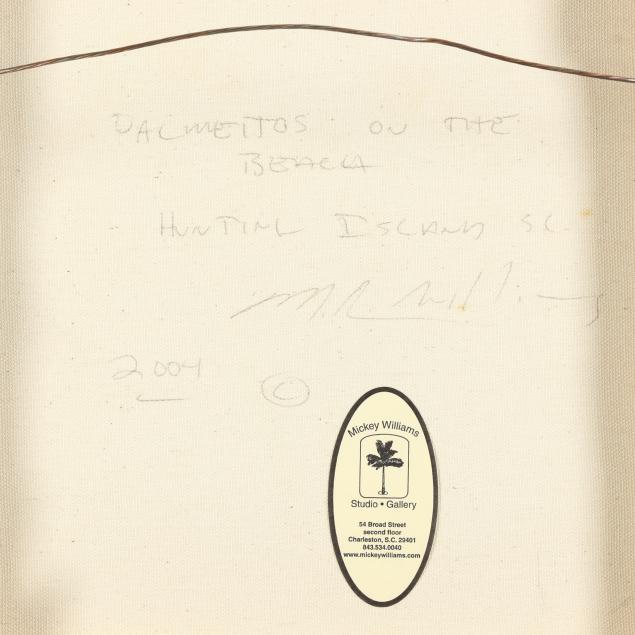 PALMETTOS ON THE
BEACH
HUNTING ISLAND SC.
2004 ©
Mickey Williams
Studio • Gallery
54 Broad Street
second floor
Charleston, S.C. 29401
843.534.0040
www.mickeywilliams.com